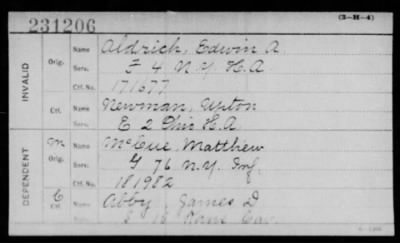 231206
(3-H-4)
INVALID
Orig.
Name Aldrich, Edwin A.
Serv. F 4 N.Y. H.A
Ctf. No. 171677
Ctf.
Name Newman, Upton
Serv. E 2 Ohio H.A.
DEPENDENT
M
Orig.
Name McCue, Matthew
Serv. G 76 N.Y. Inf.
Ctf. No. 181982
C
Ctf.
Name Abby, James D
Serv. 15 Kans Cav.